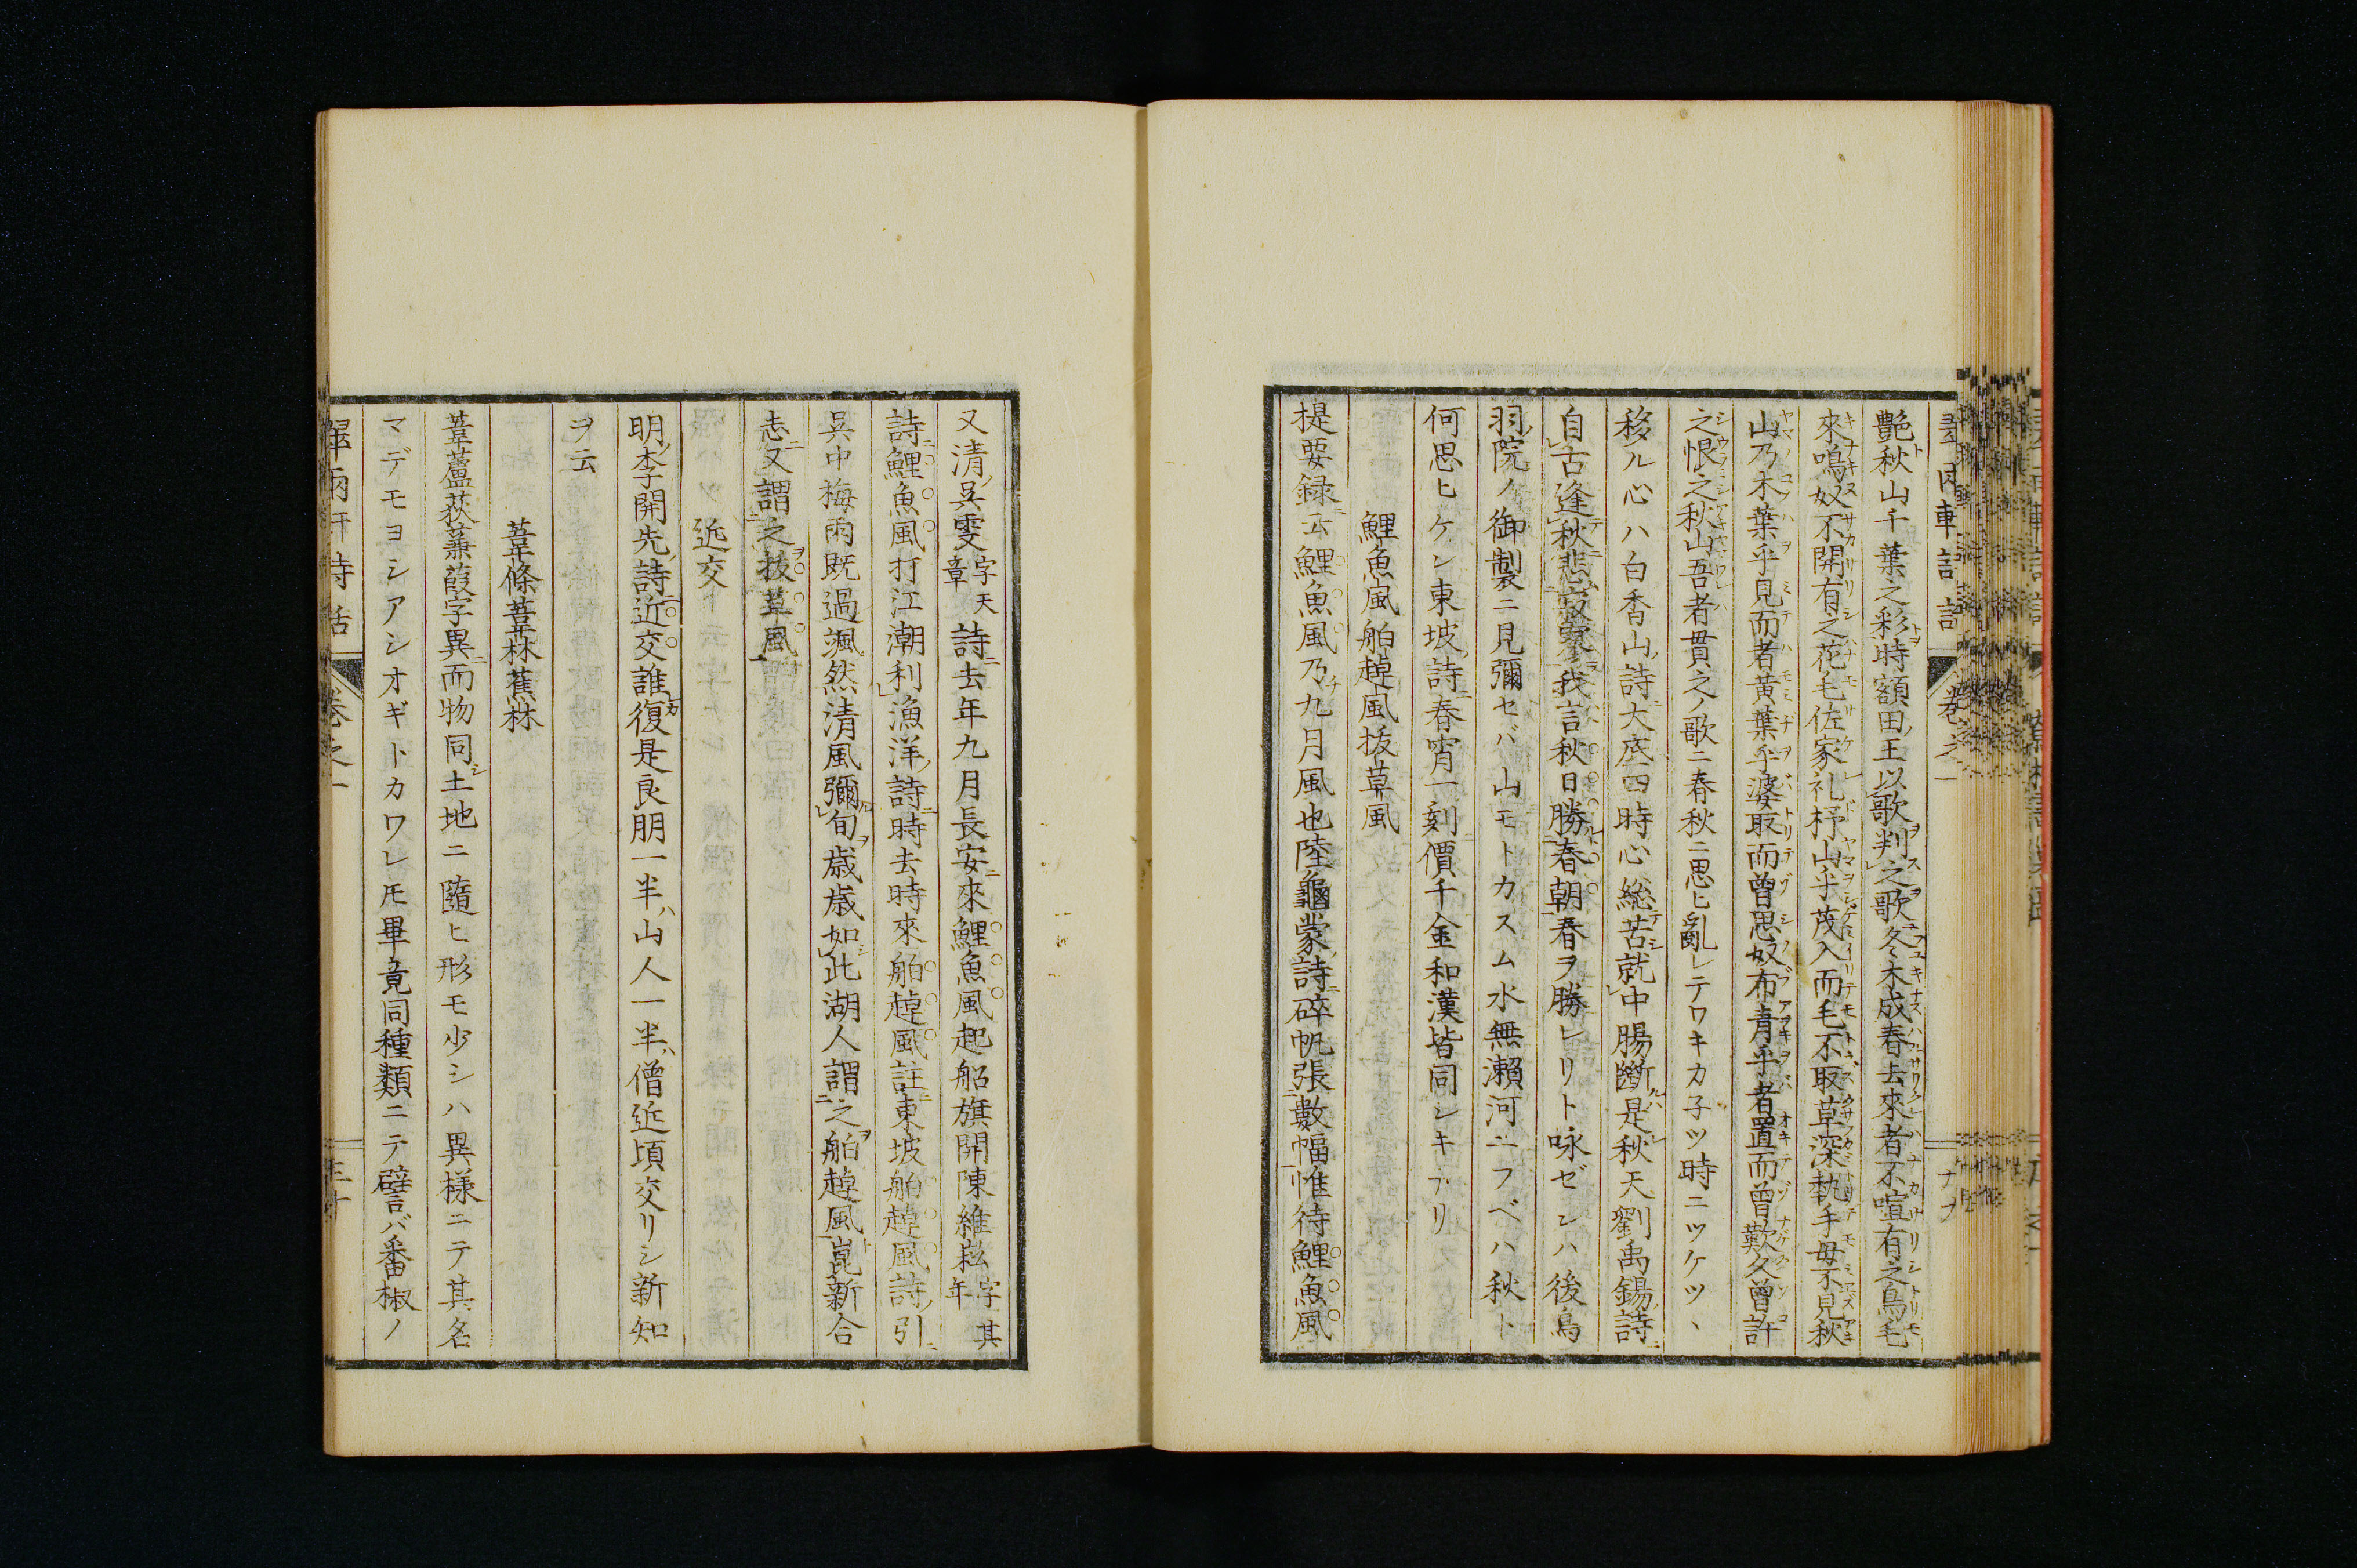 艶秋山千葉之彩時額田王以歌判之歌冬木成春去來者不喧有之鳥毛
來鳴奴不開有之花毛佐家礼杼山乎茂入而毛不取草深執手母不見秋
山乃木葉乎見而者黄葉乎婆取而曽思奴布青乎者置而曽歎久曽許
之恨之秋山吾者貫之ノ歌ニ春秋ニ思ヒ亂レテワキカ子ツ時ニツケツヽ
移ル心ハ白香山ノ詩ニ大底四時心総苦就中腸斷是秋天劉禹錫ノ詩ニ
自古逢秋悲寂寥我言秋日勝春朝春ヲ勝レリト咏ゼシハ後鳥
羽ノ院ノ御製ニ見彌セバ山モトカスム水無瀬河ユフベハ秋ト
何思ヒケン東坡ノ詩ニ春宵一刻價千金和漢皆同シキナリ
鯉魚風舶趠風拔草風
提要録ニ云鯉魚風乃チ九月風也陸龜蒙ノ詩ニ碎帆張數幅惟待鯉魚風
又清ノ呉雯字天章詩ニ去年九月長安來鯉魚風起船旗開陳維崧字其年
詩ニ鯉魚風打江潮利漁洋ノ詩ニ時去時來舶趠風註ニ東坡舶趠風詩ノ引ニ
呉中梅雨既過颯然清風彌旬歳歳如此湖人謂之舶趠風崑新合
志ニ又謂之拔草風
近交
明ノ李開先ノ詩ニ近交誰復是良朋一半ハ山人一半ハ僧近頃交リシ新知
ヲ云
葦條葦林蕉林
葦蘆荻蒹葭字異ニ而物同シ土地ニ隨ヒ形モ少シハ異様ニテ其名
マデモヨシアシオギトカワレ𪜈畢竟同種類ニテ譬バ番椒ノ
卷之一
三十